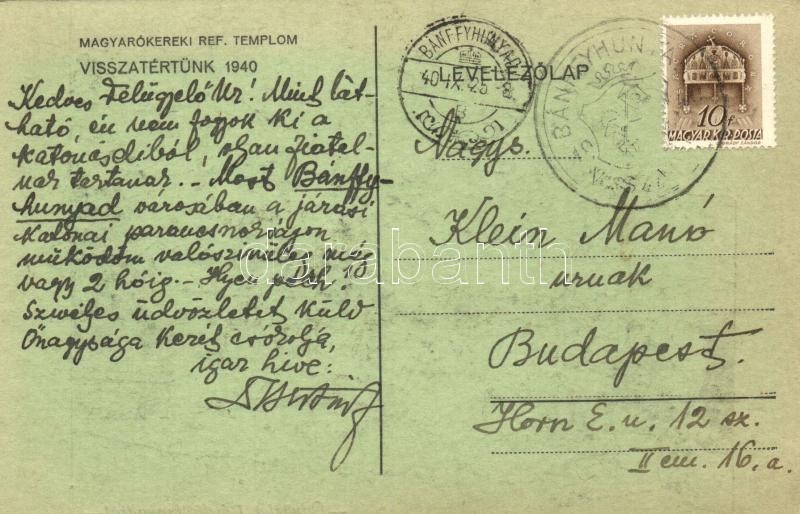 MAGYARÓKEREKI REF. TEMPLOM
VISSZATÉRTÜNK 1940
LEVELEZŐLAP
Kedves Felügyelő Úr! Mint lát-
ható, én nem fogyok ki a
katonásdiból, olyan fiatal-
nak tartanak. – Most Bánffy-
hunyad városában a járási
katonai parancsnokságon
működöm valószínűleg még
vagy 2 hóig. –
Szívélyes üdvözletet küld
Őnagysága kezét csókolja,
igaz híve:
Nagys.
Klein Manó
urnak
Budapest.
Horn E. u. 12 sz.
II em. 16. a.
BÁNFFYHUNYAD
40 IX. 25
BÁNFFYHUNYAD
VISSZATÉRT
10f
MAGYAR KIR. POSTA
darabanth